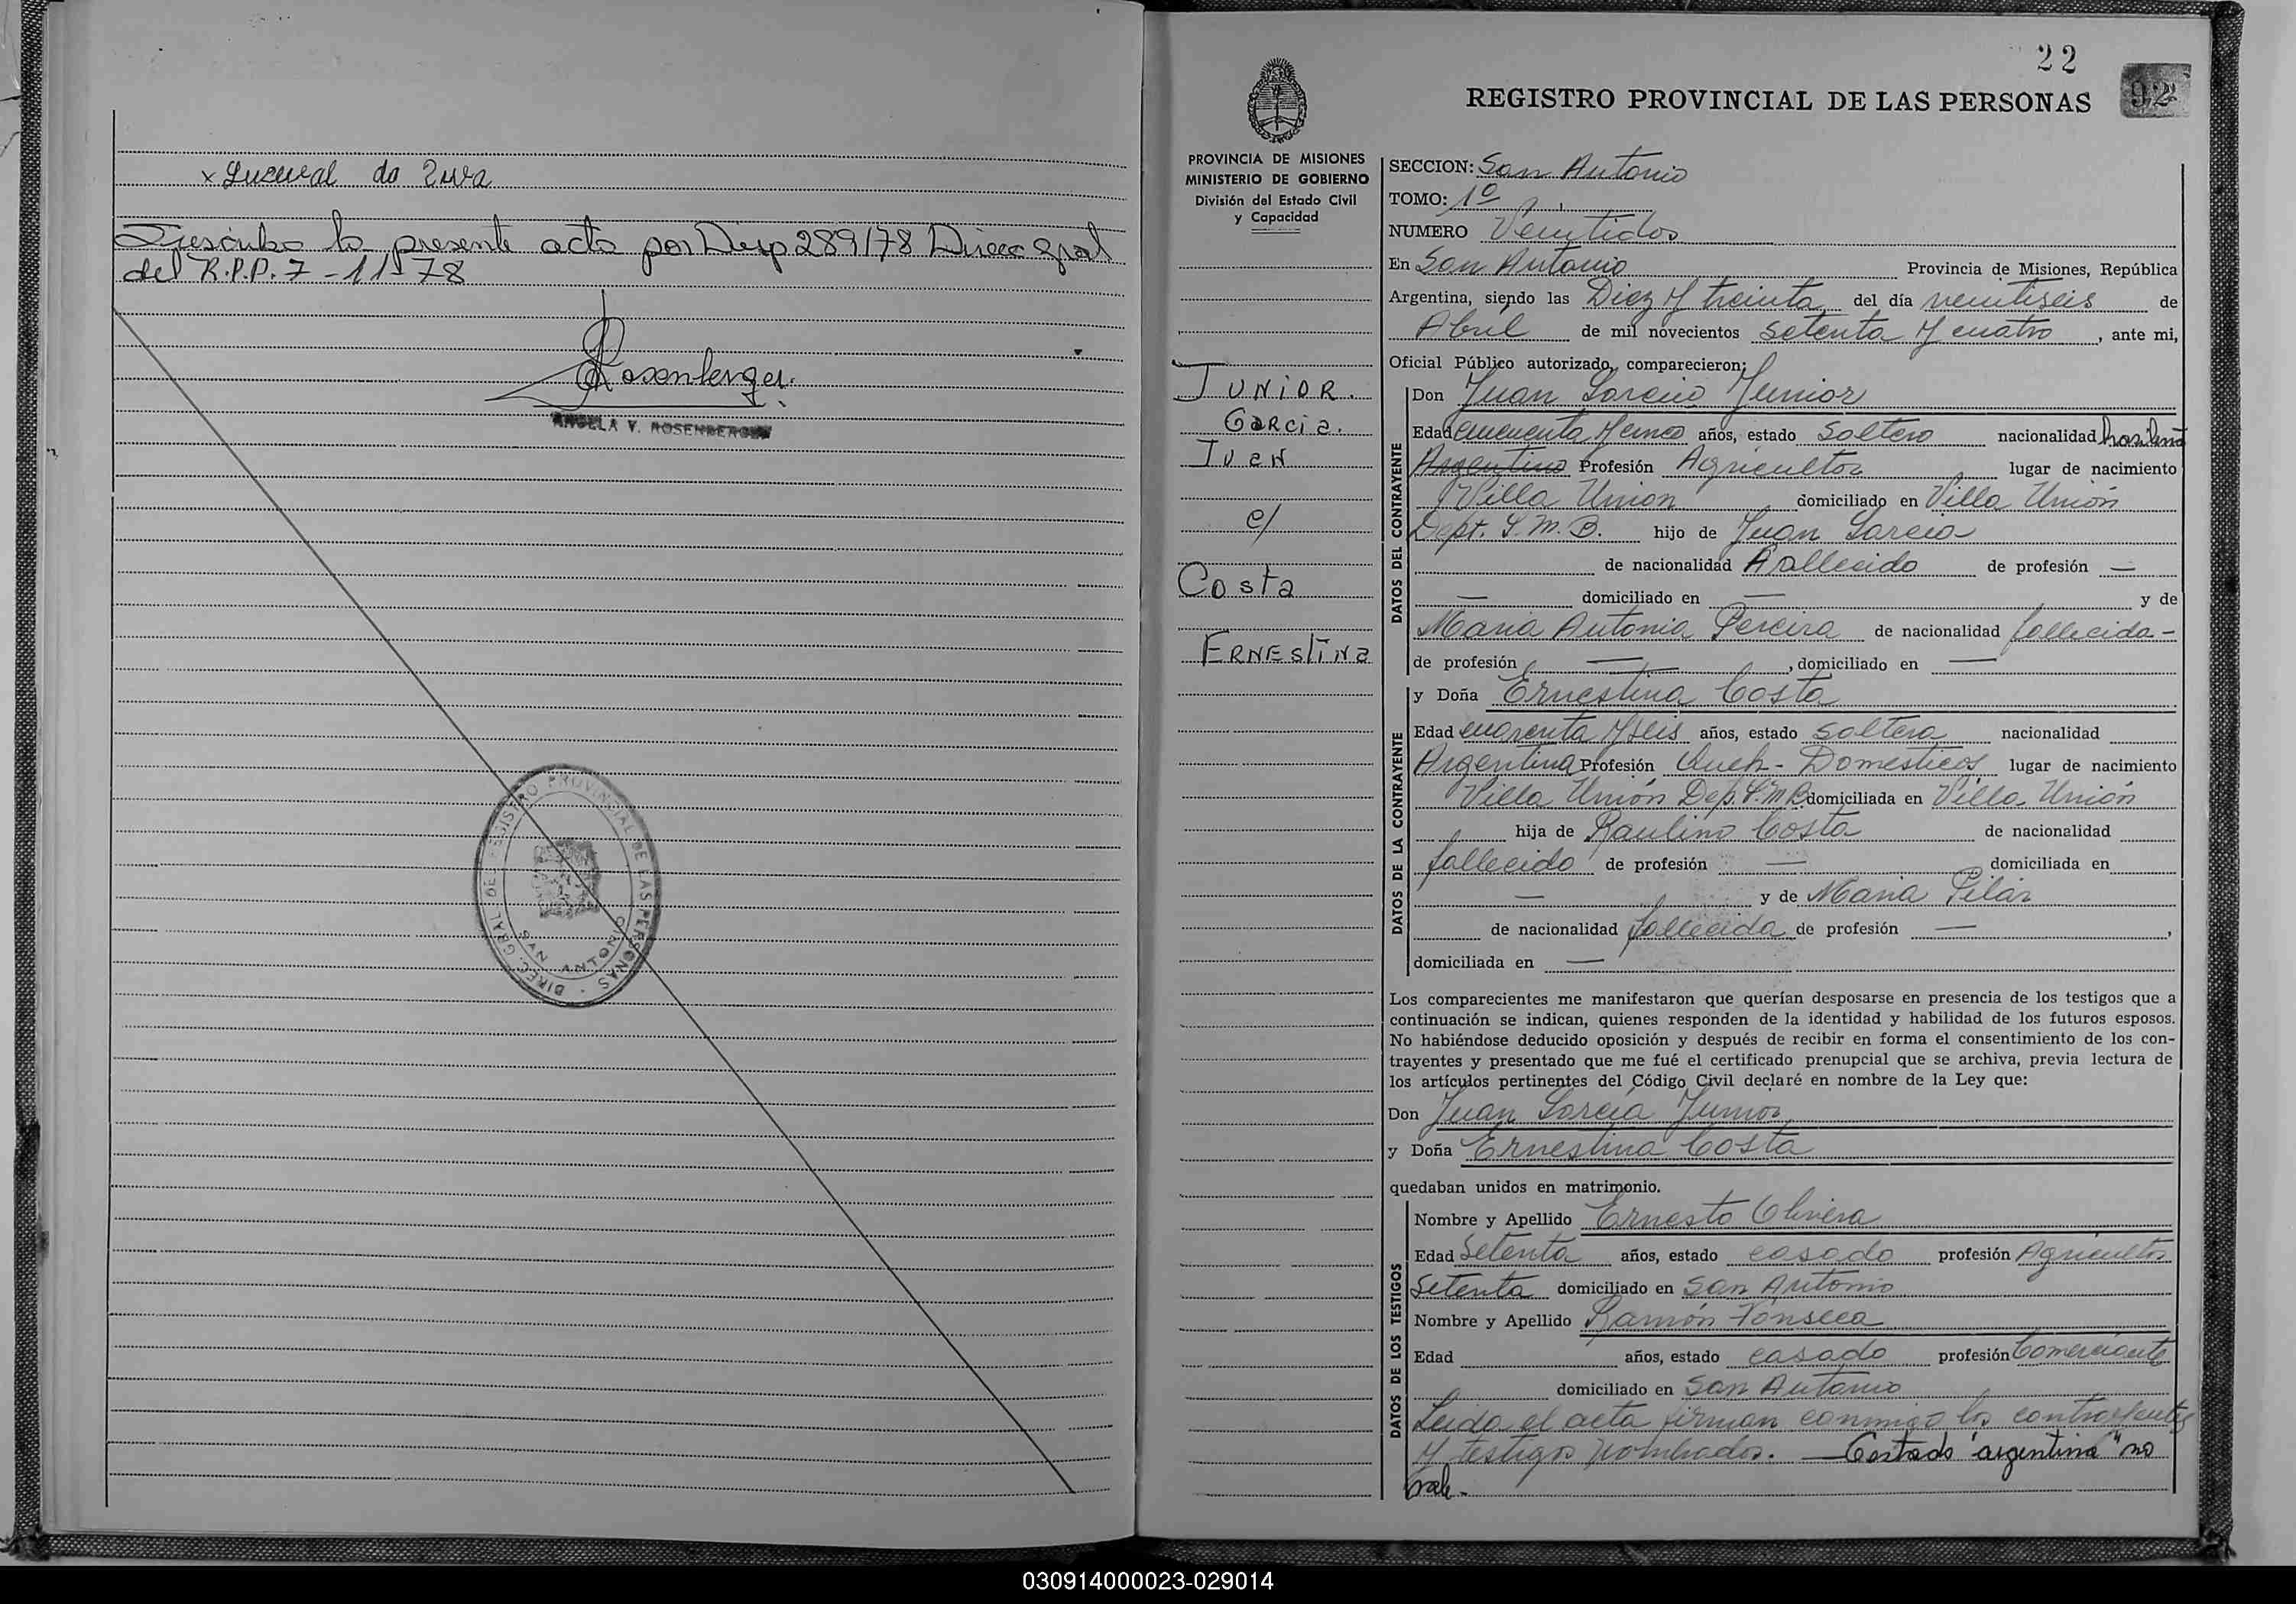 x Lucineal da Silva
Suscribo la presente acta por Disp 289/78 Direcc gral
del R.P.P. 7-11-78
Rosenberger.
ANGELA V. ROSENBERGER
DIREC. GRAL. DEL REGISTRO PROVINCIAL DE LAS PERSONAS
SAN ANTONIO
22
92
REGISTRO PROVINCIAL DE LAS PERSONAS
PROVINCIA DE MISIONES
MINISTERIO DE GOBIERNO
División del Estado Civil
y Capacidad
JUNIOR.
Garcia.
Juan
c/
Costa
ERNESTINA
SECCION: San Antonio
TOMO: 1º
NUMERO Veintidos
En San Antonio Provincia de Misiones, República
Argentina, siendo las Diez y treinta del día veintiseis de
Abril de mil novecientos setenta y cuatro, ante mi,
Oficial Público autorizado, comparecieron:
DATOS DEL CONTRAYENTE
Don Juan Garcia Junior
Edad cincuenta y cinco años, estado Soltero nacionalidad brasileña
Argentino Profesión Agricultor lugar de nacimiento
Villa Union domiciliado en Villa Unión
Dept. S. M. B. hijo de Juan Garcia
de nacionalidad Fallecido de profesión —
— domiciliado en — y de
Maria Antonia Pereira de nacionalidad fallecida -
de profesión —, domiciliado en —
DATOS DE LA CONTRAYENTE
y Doña Ernestina Costa
Edad cuarenta y seis años, estado Soltera nacionalidad
Argentina Profesión Queh - Domesticos lugar de nacimiento
Villa Unión Dep. S. M. B. domiciliada en Villa Unión
hija de Raulino Costa de nacionalidad
fallecido de profesión — domiciliada en
— y de Maria Pilar
de nacionalidad fallecida de profesión —,
domiciliada en —
Los comparecientes me manifestaron que querían desposarse en presencia de los testigos que a
continuación se indican, quienes responden de la identidad y habilidad de los futuros esposos.
No habiéndose deducido oposición y después de recibir en forma el consentimiento de los con-
trayentes y presentado que me fué el certificado prenupcial que se archiva, previa lectura de
los artículos pertinentes del Código Civil declaré en nombre de la Ley que:
Don Juan García Junior
y Doña Ernestina Costa
quedaban unidos en matrimonio.
DATOS DE LOS TESTIGOS
Nombre y Apellido Ernesto Olivera
Edad Setenta años, estado casado profesión Agricultor
Setenta domiciliado en San Antonio
Nombre y Apellido Ramón Fonseca
Edad años, estado casado profesión Comerciante
domiciliado en San Antonio
Leida el acta firman conmigo los contrayentes
y testigos nombrados. — Testado "argentina" no
vale.-
030914000023-029014